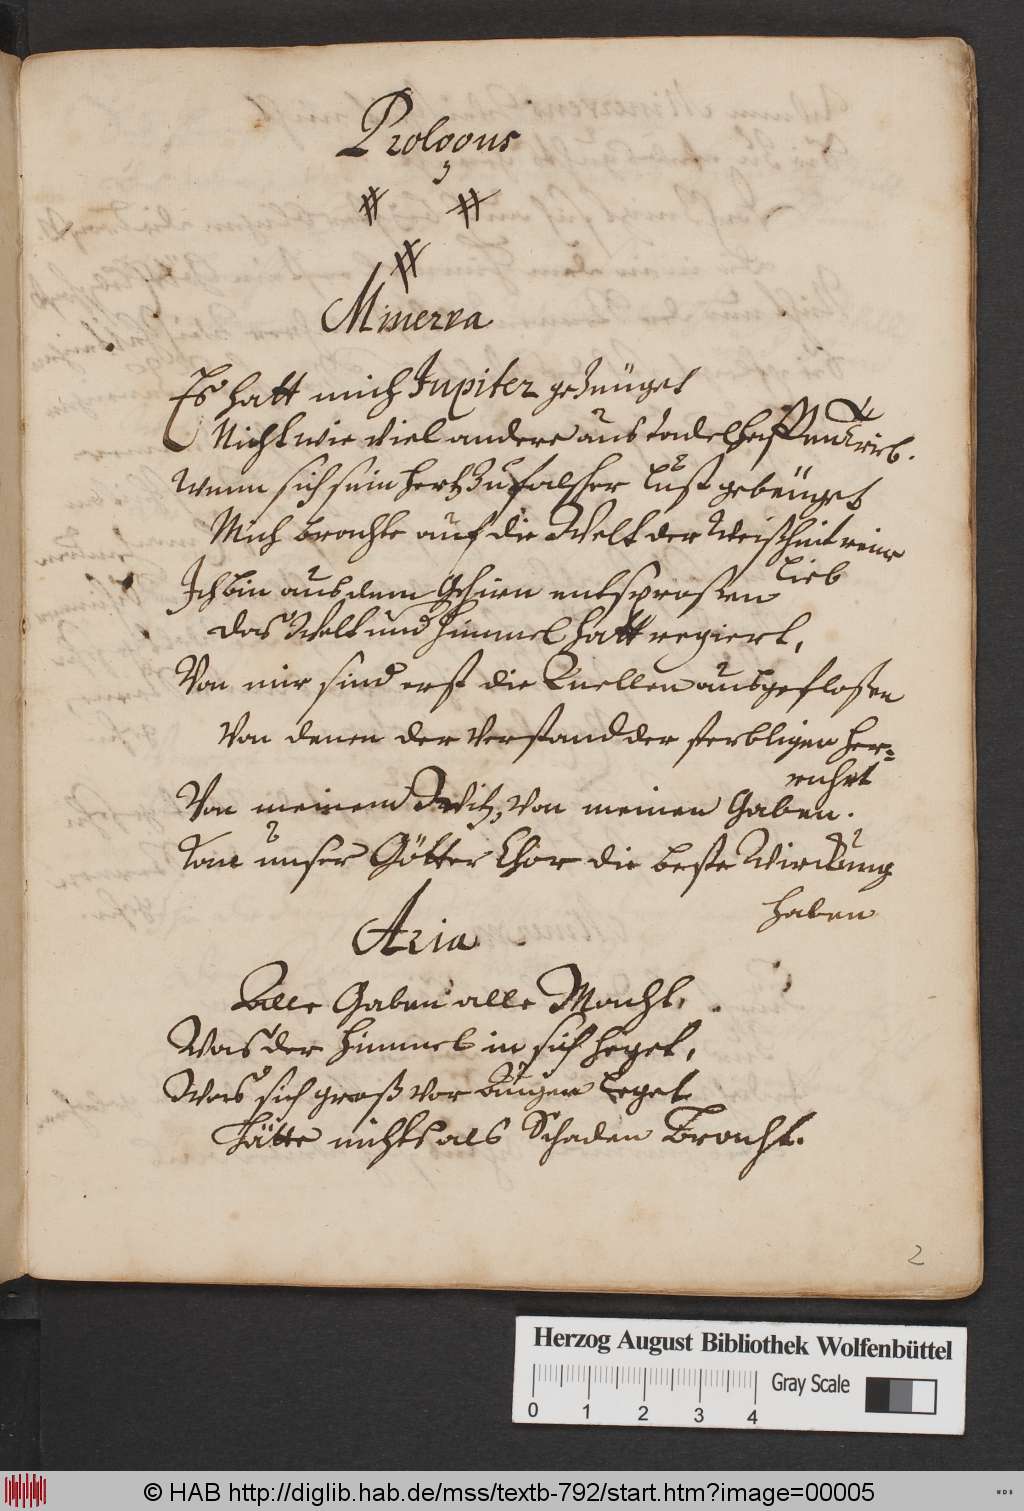 Prologus
Minerva
Es hatt mich Jupiter gezeüget
Nicht wie viel andere aus tadelhafften Trieb.
Wenn sich sein Hertz zu falscher Lust gebeüget
Mich brachte auf die Welt der Weißheit reine
Lieb
Ich bin aus dem Gehirn entsproßen
das Welt und Himmel hatt regiert,
Von mir sind erst die Quellen ausgefloßen
Von denen der Verstand der sterbligen her=
rührt
Von meinem Witz, von meinen Gaben.
Kan unser Götter Chor die beste Würckung
haben
Aria
Alle Gaben alle Macht,
Was der Himmel in sich heget,
Was sich groß vor Augen leget
Hätte nichts als Schaden Bracht.
2
Herzog August Bibliothek Wolfenbüttel
Gray Scale
0 1 2 3 4
© HAB http://diglib.hab.de/mss/textb-792/start.htm?image=00005